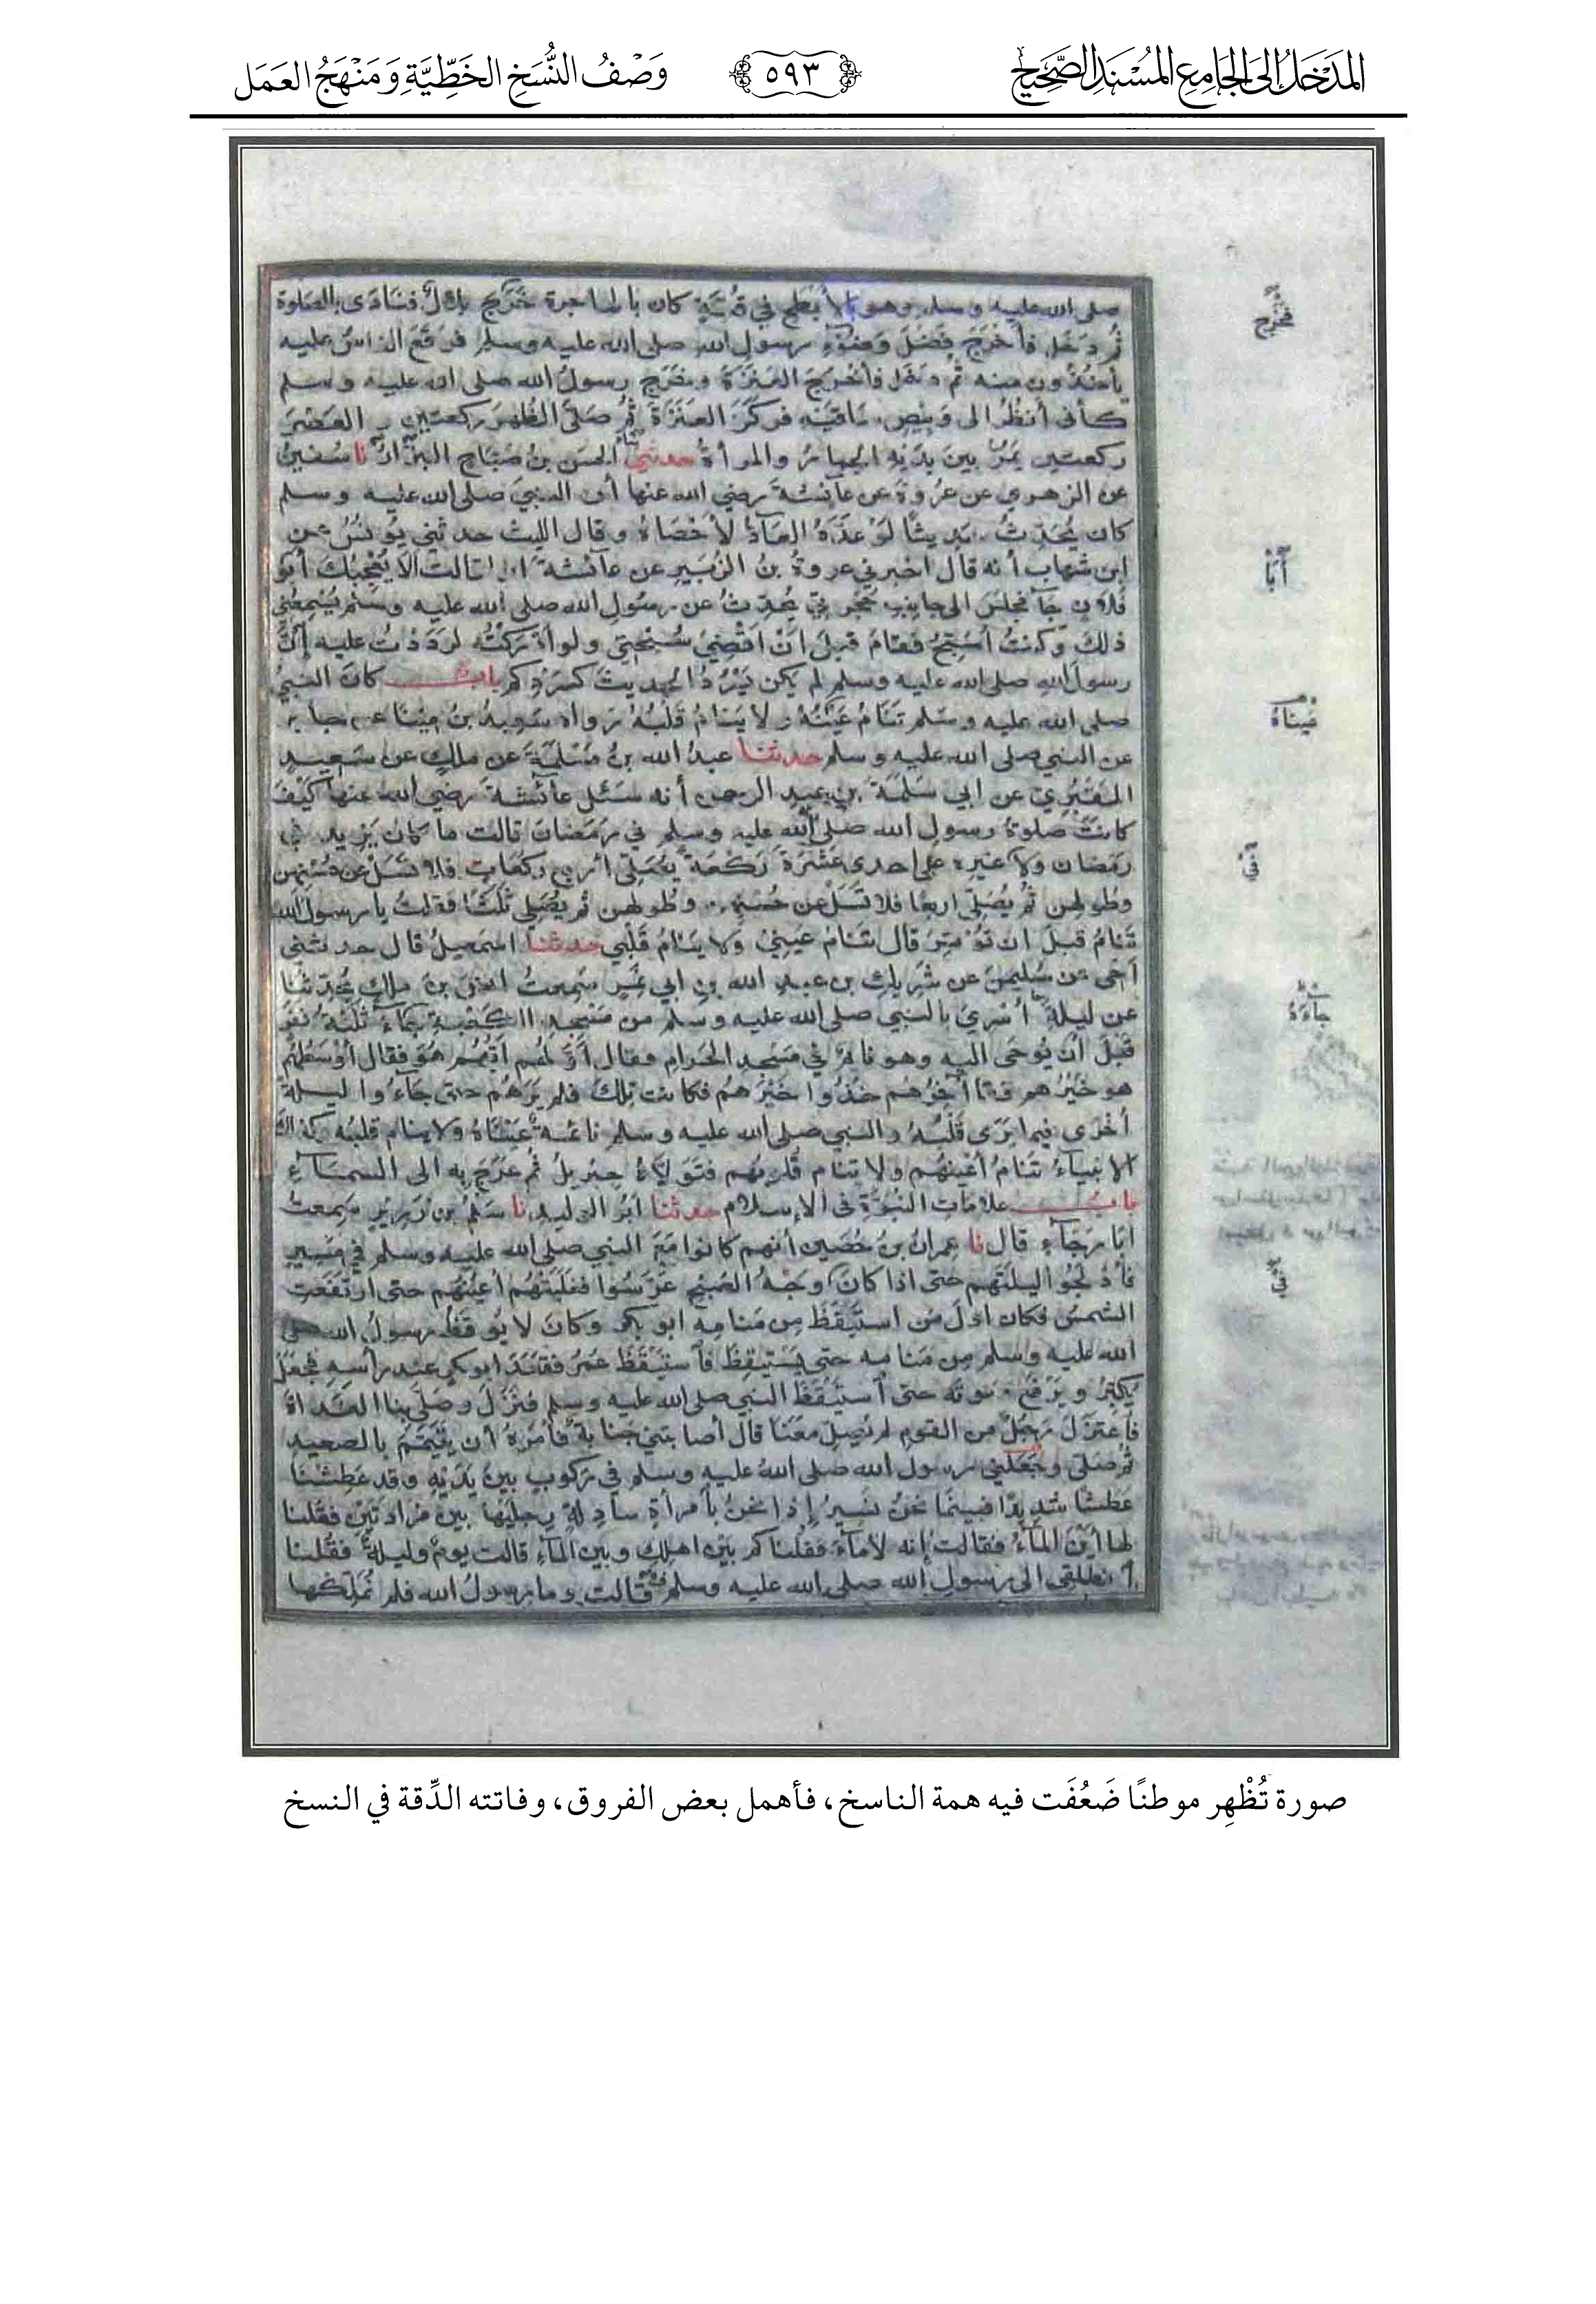 المدخل إلى الجامع المسند الصحيح
٥٩٣
وَصْفُ النُّسَخِ الخَطِّيَّةِ وَمَنْهَجُ العَمَل
صلى الله عليه وسلم وهو بالأبطح في قبة كان بالهاجرة خرج بلال فنادى بالصلوة
ثم دخل فأخرج فضل وضوء رسول الله صلى الله عليه وسلم فوقع الناس عليه
يأخذون منه ثم دخل فأخرج العنزة وخرج رسول الله صلى الله عليه وسلم
كأني أنظر الى وبيص ساقيه فركز العنزة ثم صلى الظهر ركعتين و العصر
ركعتين يمر بين يديه الحمار والمرأة حدثني الحسن بن صباح البزار نا سفين
عن الزهري عن عروة عن عائشة رضي الله عنها أن النبي صلى الله عليه وسلم
كان يحدث حديثا لو عده العاد لأحصاه وقال الليث حدثني يونس عن
ابن شهاب أنه قال اخبرني عروة بن الزبير عن عائشة قالت ألا يعجبك أبو
فلان جاء فجلس الى جانب حجرتي يحدث عن رسول الله صلى الله عليه وسلم يسمعني
ذلك وكنت أسبح فقام قبل ان اقضي سبحتي ولو أدركته لرددت عليه إن
رسول الله صلى الله عليه وسلم لم يكن يسرد الحديث كسردكم باب كان النبي
صلى الله عليه وسلم تنام عينه ولا ينام قلبه رواه سعيد بن ميناء عن جابر
عن النبي صلى الله عليه وسلم حدثنا عبد الله بن مسلمة عن ملك عن سعيد
المقبري عن ابي سلمة بن عبد الرحمن أنه سئل عائشة رضي الله عنها كيف
كانت صلوة رسول الله صلى الله عليه وسلم في رمضان قالت ما كان يزيد في
رمضان ولا غيره على احدى عشرة ركعة يصلي أربع ركعات فلا تسل عن حسنهن
وطولهن ثم يصلي اربعا فلا تسل عن حسنهن وطولهن ثم يصلي ثلثا فقلت يا رسول الله
تنام قبل ان توتر قال تنام عيني ولا ينام قلبي حدثنا اسمعيل قال حدثني
أخي عن سليمن عن شريك بن عبد الله بن ابي نمر سمعت انس بن ملك يحدثنا
عن ليلة أسري بالنبي صلى الله عليه وسلم من مسجد الكعبة جاء ثلثة نفر
قبل أن يوحى اليه وهو نائم في مسجد الحرام فقال أولهم أيهم هو فقال أوسطهم
هو خيرهم وقال آخرهم خذوا خيرهم فكانت تلك فلم يرهم حتى جاءوا ليلة
أخرى فيما يرى قلبه والنبي صلى الله عليه وسلم نائمة عيناه ولا ينام قلبه وكذلك
الانبياء تنام أعينهم ولا تنام قلوبهم فتولاه جبريل ثم عرج به الى السماء
باب علامات النبوة في الإسلام حدثنا ابو الوليد نا سلم بن زرير سمعت
ابا رجاء قال نا عمران بن حصين أنهم كانوا مع النبي صلى الله عليه وسلم في مسير
فأدلجوا ليلتهم حتى اذا كان وجه الصبح عرسوا فغلبتهم أعينهم حتى ارتفعت
الشمس فكان اول من استيقظ من منامه ابو بكر وكان لا يوقظ رسول الله صلى
الله عليه وسلم من منامه حتى يستيقظ فاستيقظ عمر فقعد ابو بكر عند رأسه فجعل
يكبر ويرفع صوته حتى استيقظ النبي صلى الله عليه وسلم فنزل وصلى بنا الغداة
فاعتزل رجل من القوم لم يصل معنا قال أصابتني جنابة فأمره أن يتيمم بالصعيد
ثم صلى وجعلني رسول الله صلى الله عليه وسلم في ركوب بين يديه وقد عطشنا
عطشا شديدا فبينما نحن نسير إذا نحن بامرأة سادلة رجليها بين مزادتين فقلنا
لها أين الماء فقالت إنه لا ماء فقلنا كم بين اهلك وبين الماء قالت يوم وليلة فقلنا
انطلقي الى رسول الله صلى الله عليه وسلم قالت وما رسول الله فلم نملكها
فخرج
أبا
عيناه
في
جاءه
صورة تُظْهِر موطنًا ضَعُفَت فيه همة الناسخ، فأهمل بعض الفروق، وفاتته الدِّقة في النسخ